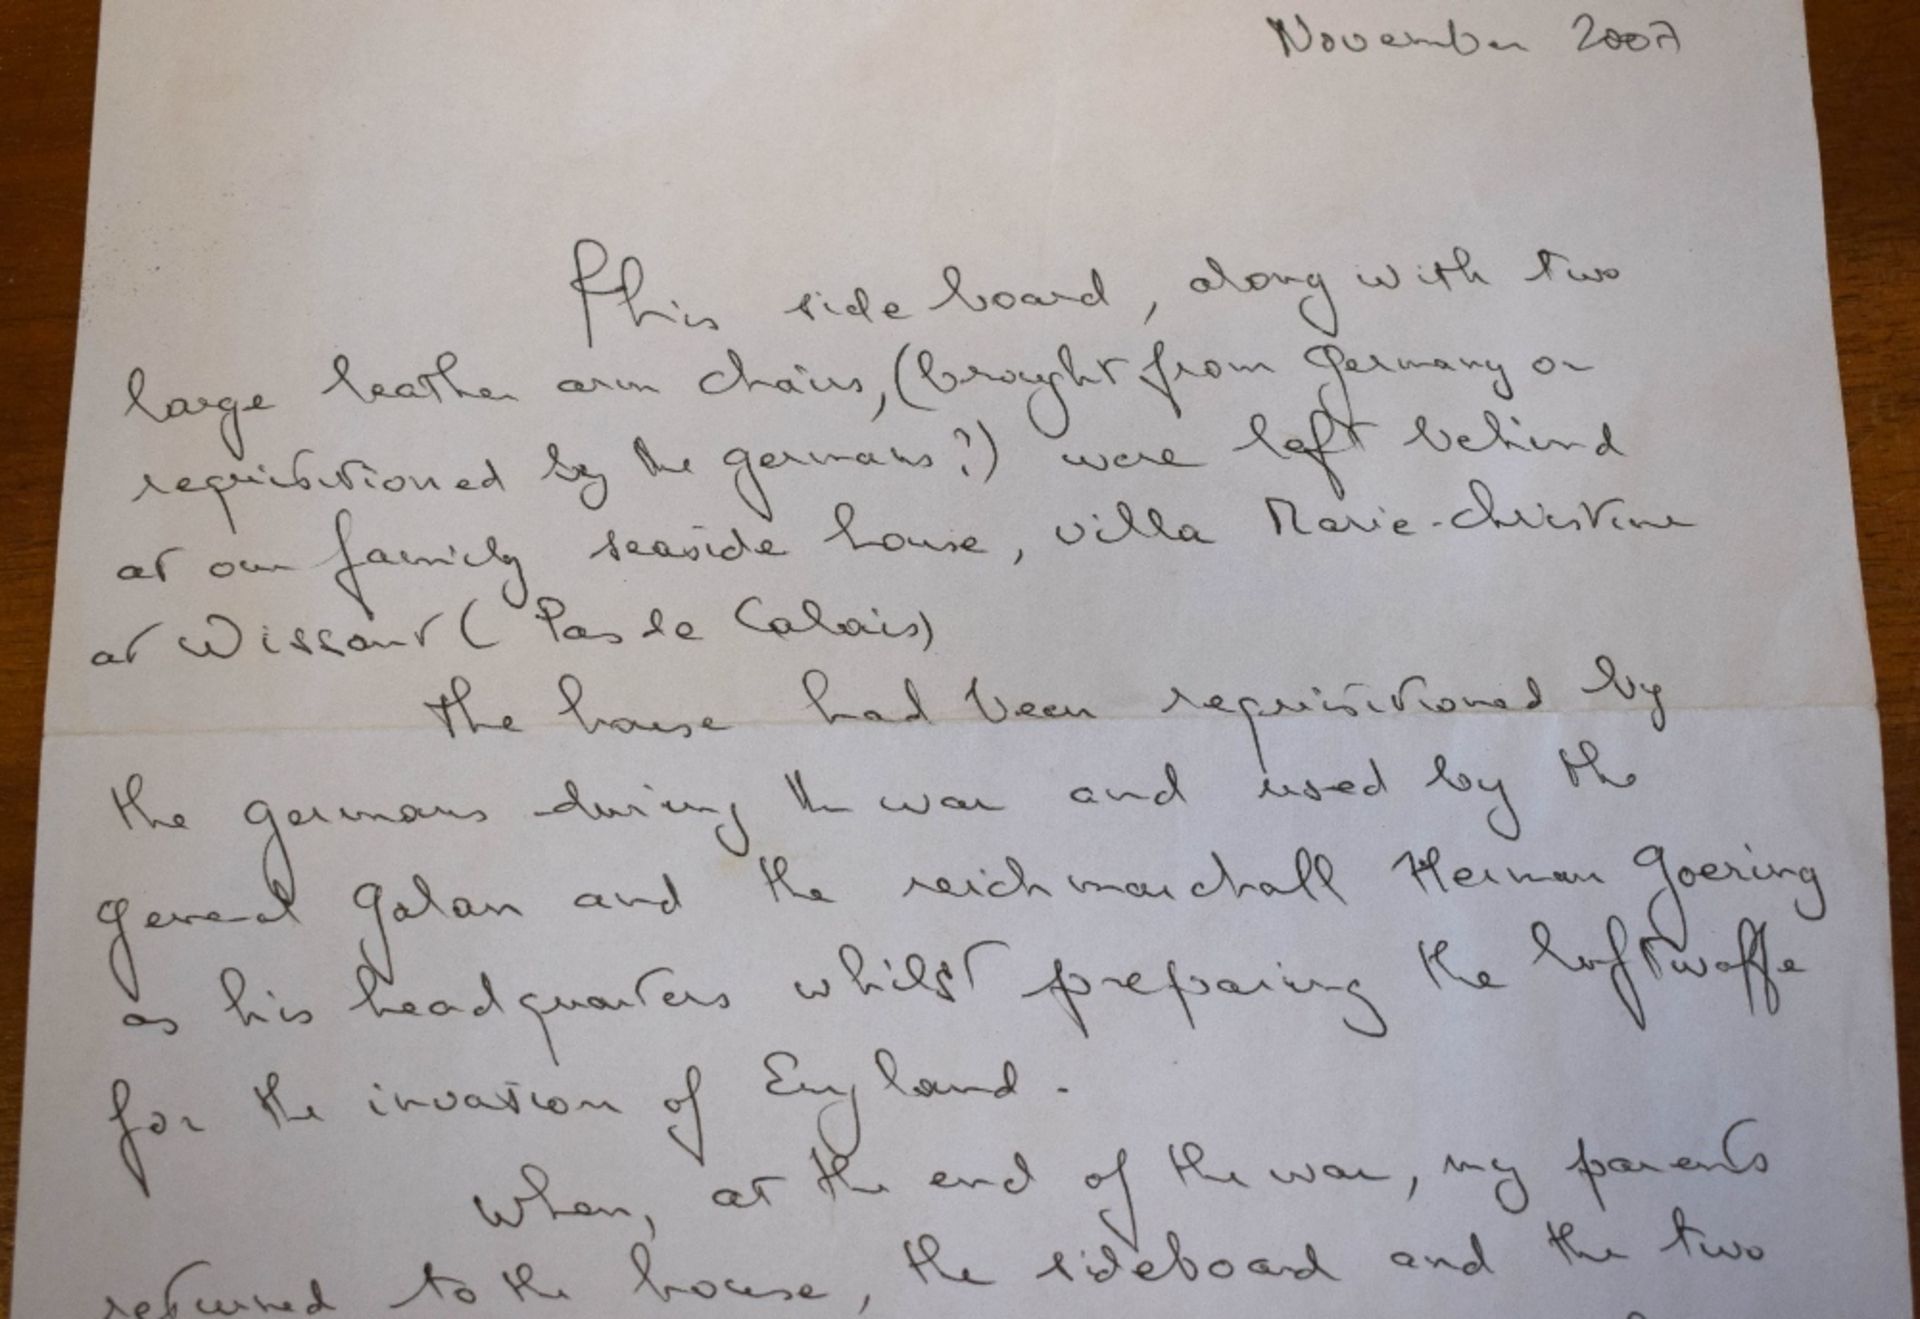 November 2007
This side board, along with two
large leather arm chairs, (brought from Germany or
requisitioned by the germans?) were left behind
at our family seaside house, villa Marie-Christine
at Wissant (Pas de Calais)
The house had been requisitioned by
the germans during the war and used by the
general Galan and the reichmarchall Herman Goering
as his headquarters whilst preparing the luftwaffe
for the invasion of England.
When, at the end of the war, my parents
returned to the house, the sideboard and the two